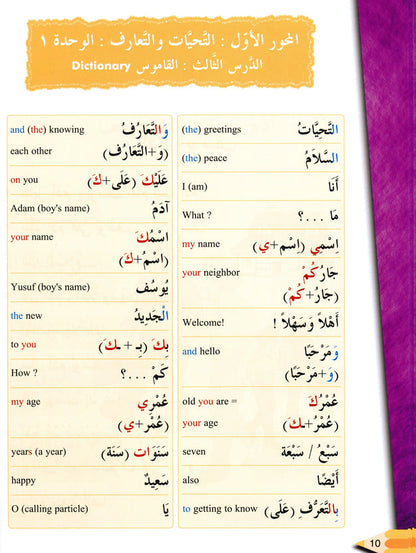 المحور الأوّل : التَّحيَّات والتَّعارف : الوحدة ١
الدَّرس الثَّالث : القاموس Dictionary
(the) greetings التَّحيَّاتُ
(the) peace السَّلَامُ
I (am) أَنَا
What ? مَا ...؟
my name اِسْمِي (اِسْم+ي)
your neighbor جَارُكُمْ
(جَارُ+كُمْ)
Welcome! أَهْلاً وَسَهْلاً !
and hello وَمَرْحَبًا
(وَ+مَرْحَبًا)
old you are = عُمْرُكَ
your age (عُمْرُ+ـكَ)
seven سَبْعُ / سَبْعَة
also أَيْضًا
to getting to know بِالتَّعَرُّفِ (عَلَى)
and (the) knowing وَالتَّعَارُفُ
each other (وَ+التَّعَارُفُ)
on you عَلَيْكَ (عَلَى+كَ)
Adam (boy's name) آدَمُ
your name اسْمُكَ
(اسْمُ+كَ)
Yusuf (boy's name) يُوسُف
the new الْجَدِيدُ
to you بِكَ (بِـ + ـكَ)
How ? كَمْ ...؟
my age عُمْرِي
(عُمْر+ي)
years (a year) سَنَوَات (سَنَة)
happy سَعِيدٌ
O (calling particle) يَا
10